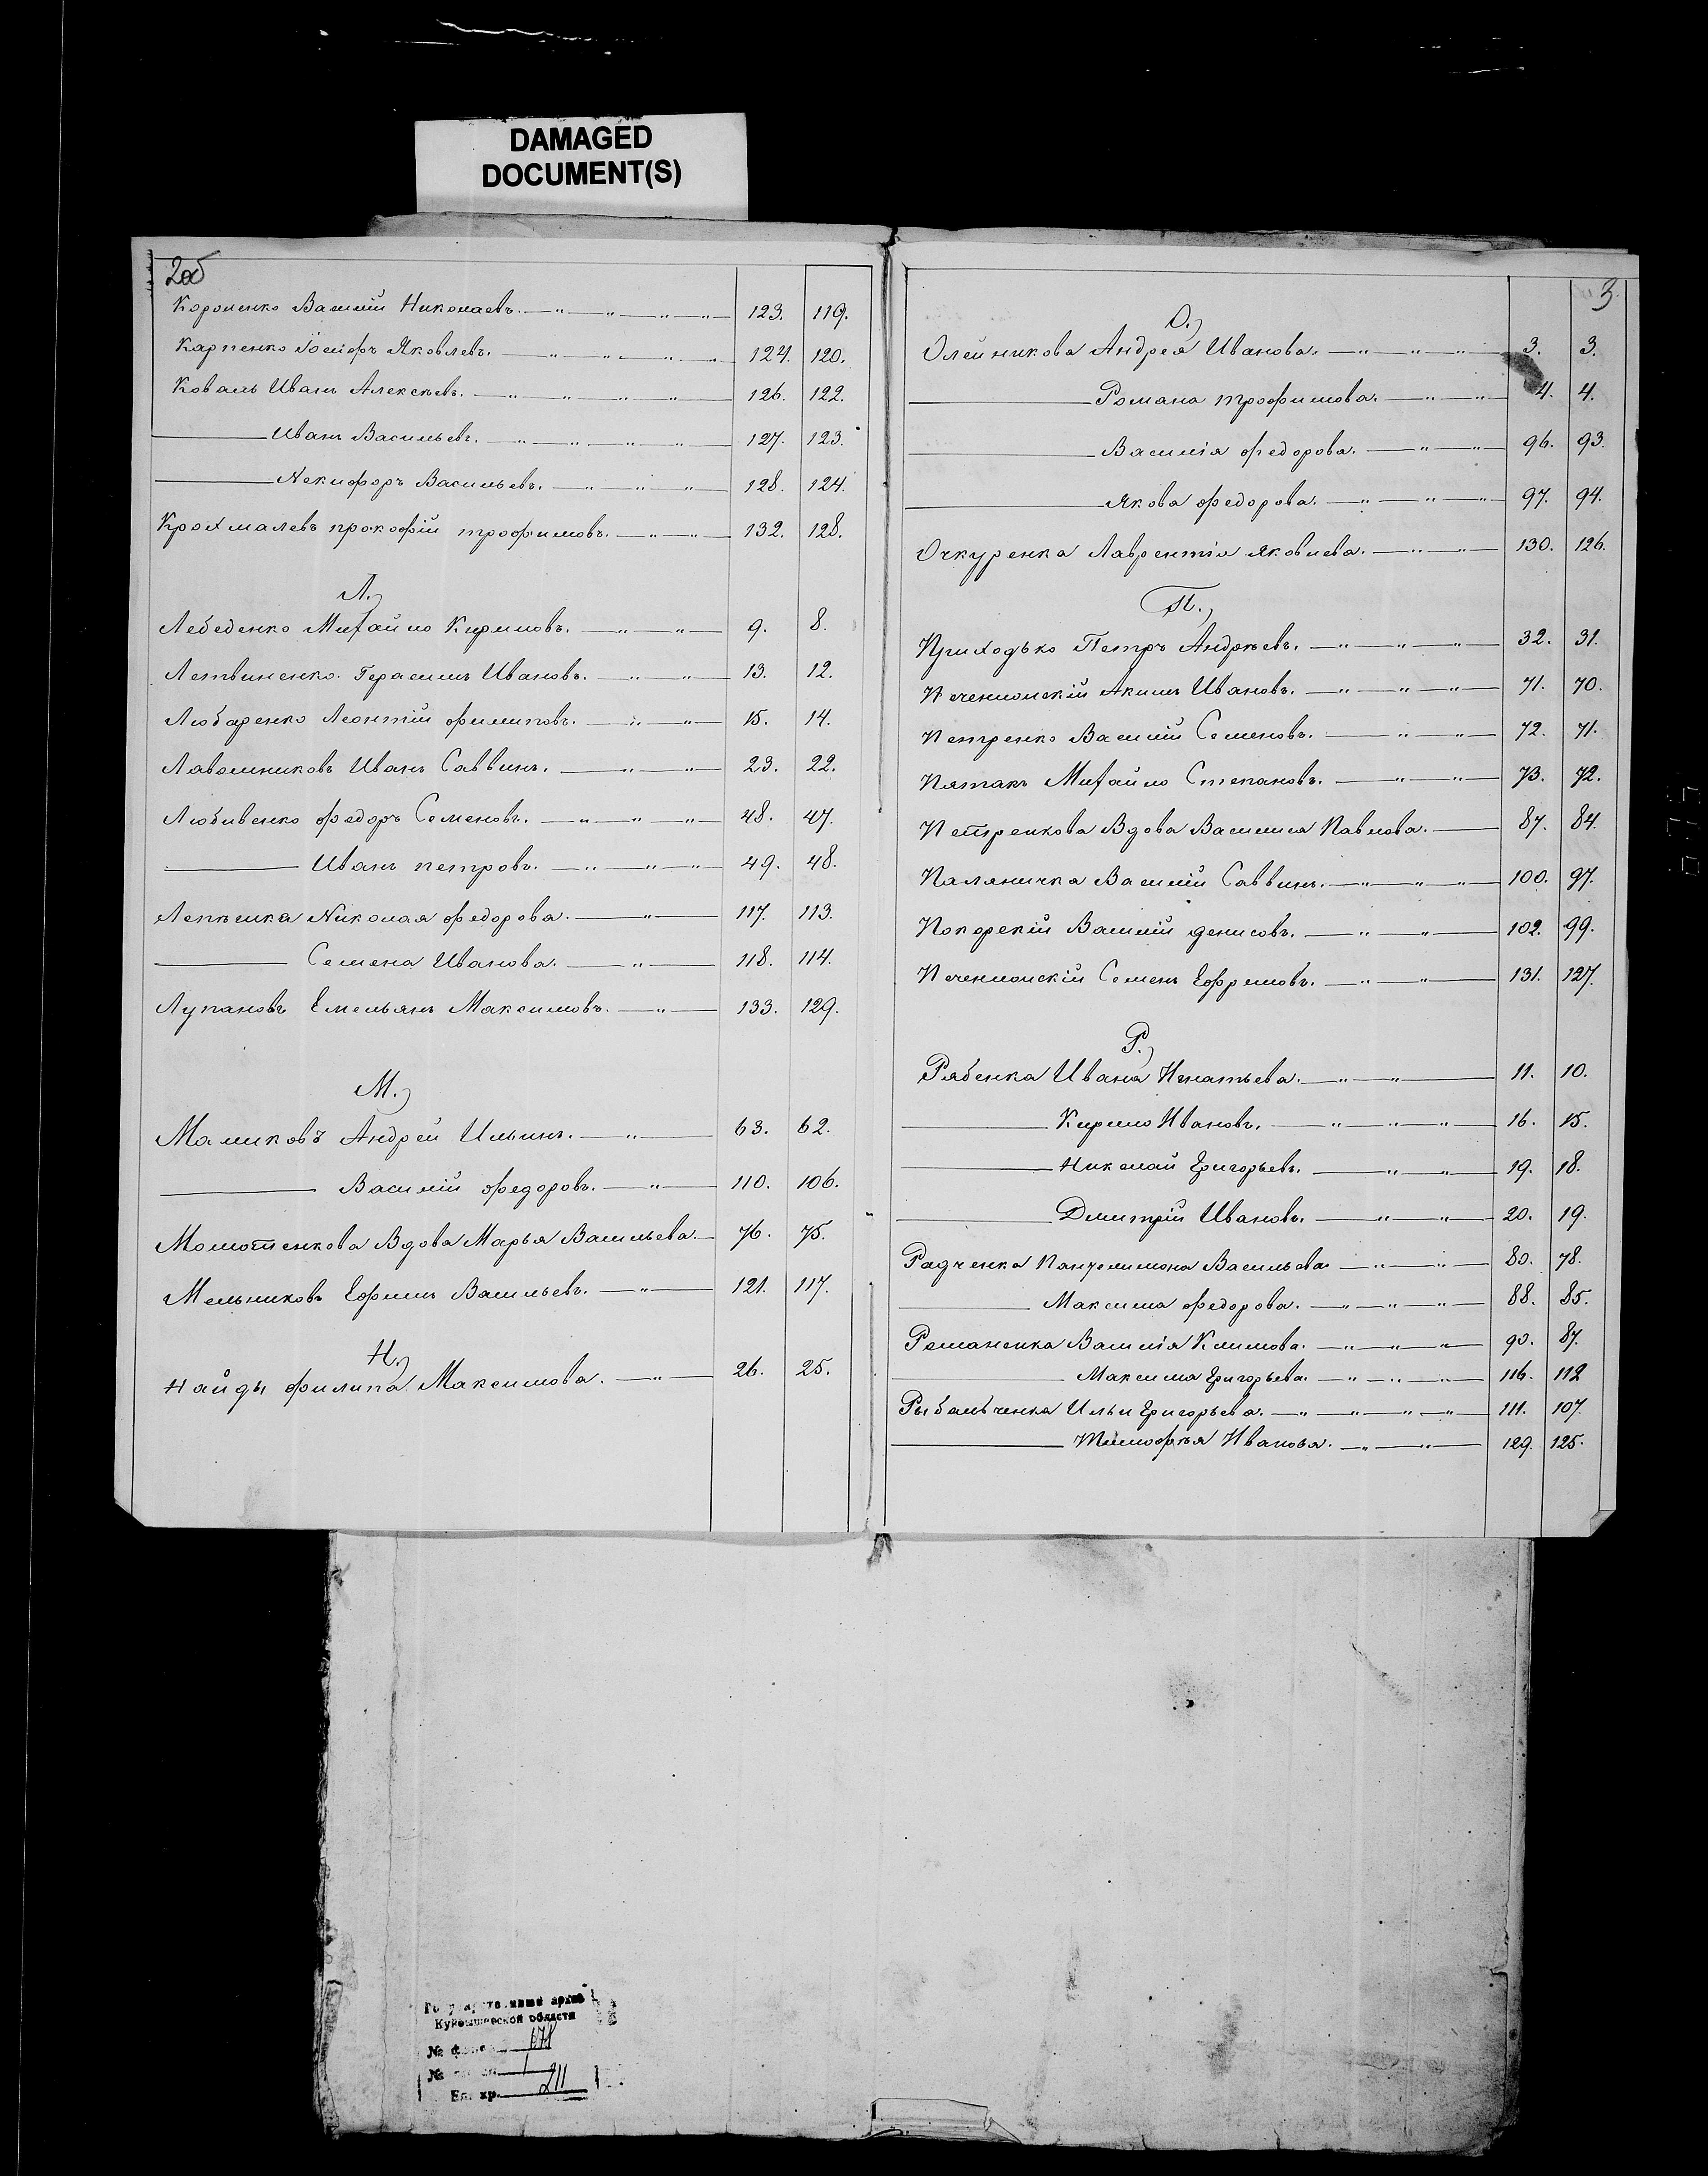 DAMAGED
DOCUMENT(S)
2об
Короленко Василій Николаевъ. 123. 119.
Карпенко Іосифъ Яковлевъ. 124. 120.
Коваль Иванъ Алексѣевъ. 126. 122.
Иванъ Васильевъ. 127. 123.
Некифоръ Васильевъ. 128. 124.
Крохмалевъ прокофій трофимовъ. 132. 128.
Л.
Лебеденко Михайло Кириловъ. 9. 8.
Летвиненко Герасимъ Ивановъ. 13. 12.
Любаренко Леонтій филиповъ. 15. 14.
Лавошниковъ Иванъ Саввинъ. 23. 22.
Любивенко федоръ Семеновъ. 48. 47.
Иванъ петровъ. 49. 48.
Лепѣшка Николая федорова. 117. 113.
Семена Иванова. 118. 114.
Лупановъ Емельянъ Максимовъ. 133. 129.
М.
Маликовъ Андрей Ильинъ. 63. 62.
Василій федоровъ. 110. 106.
Молотенкова Вдова Марья Васильева 76. 75.
Мельниковъ Ефимъ Васильевъ. 121. 117.
Н.
Найды филипа Максимова. 26. 25.
3
О.
Олейникова Андрея Иванова. 3. 3.
Романа трофимова. 4. 4.
Василія федорова. 96. 93.
Якова федорова. 97. 94.
Очкуренка Лаврентія яковлева. 130. 126.
П.
Приходько Петръ Андрѣевъ. 32. 31.
Печенюнскій Акимъ Ивановъ. 71. 70.
Петренко Василій Семеновъ. 72. 71.
Пятакъ Михайло Степановъ. 73. 72.
Петренкова Вдова Василиса Павлова. 87. 84.
Паляничка Василій Саввинъ. 100. 97.
Покорскій Василій денисовъ. 102. 99.
Печенюнскій Семенъ Ефремовъ. 131. 127.
Р.
Рябенка Ивана Игнатьева. 11. 10.
Кирило Ивановъ. 16. 15.
Николай Григорьевъ. 19. 18.
Дмитрій Ивановъ. 20. 19.
Радченка Пантелимона Васильева 80. 78.
Максима федорова. 88. 85.
Романенка Василія Климова. 90. 87.
Максима Григорьева. 116. 112
Рыбальченка Ильи Григорьева. 111. 107.
Тимофѣя Иванова. 129. 125.
Государственный архив
Куйбышевской области
№ фонда 678
№ 1
Ед. хр. 211